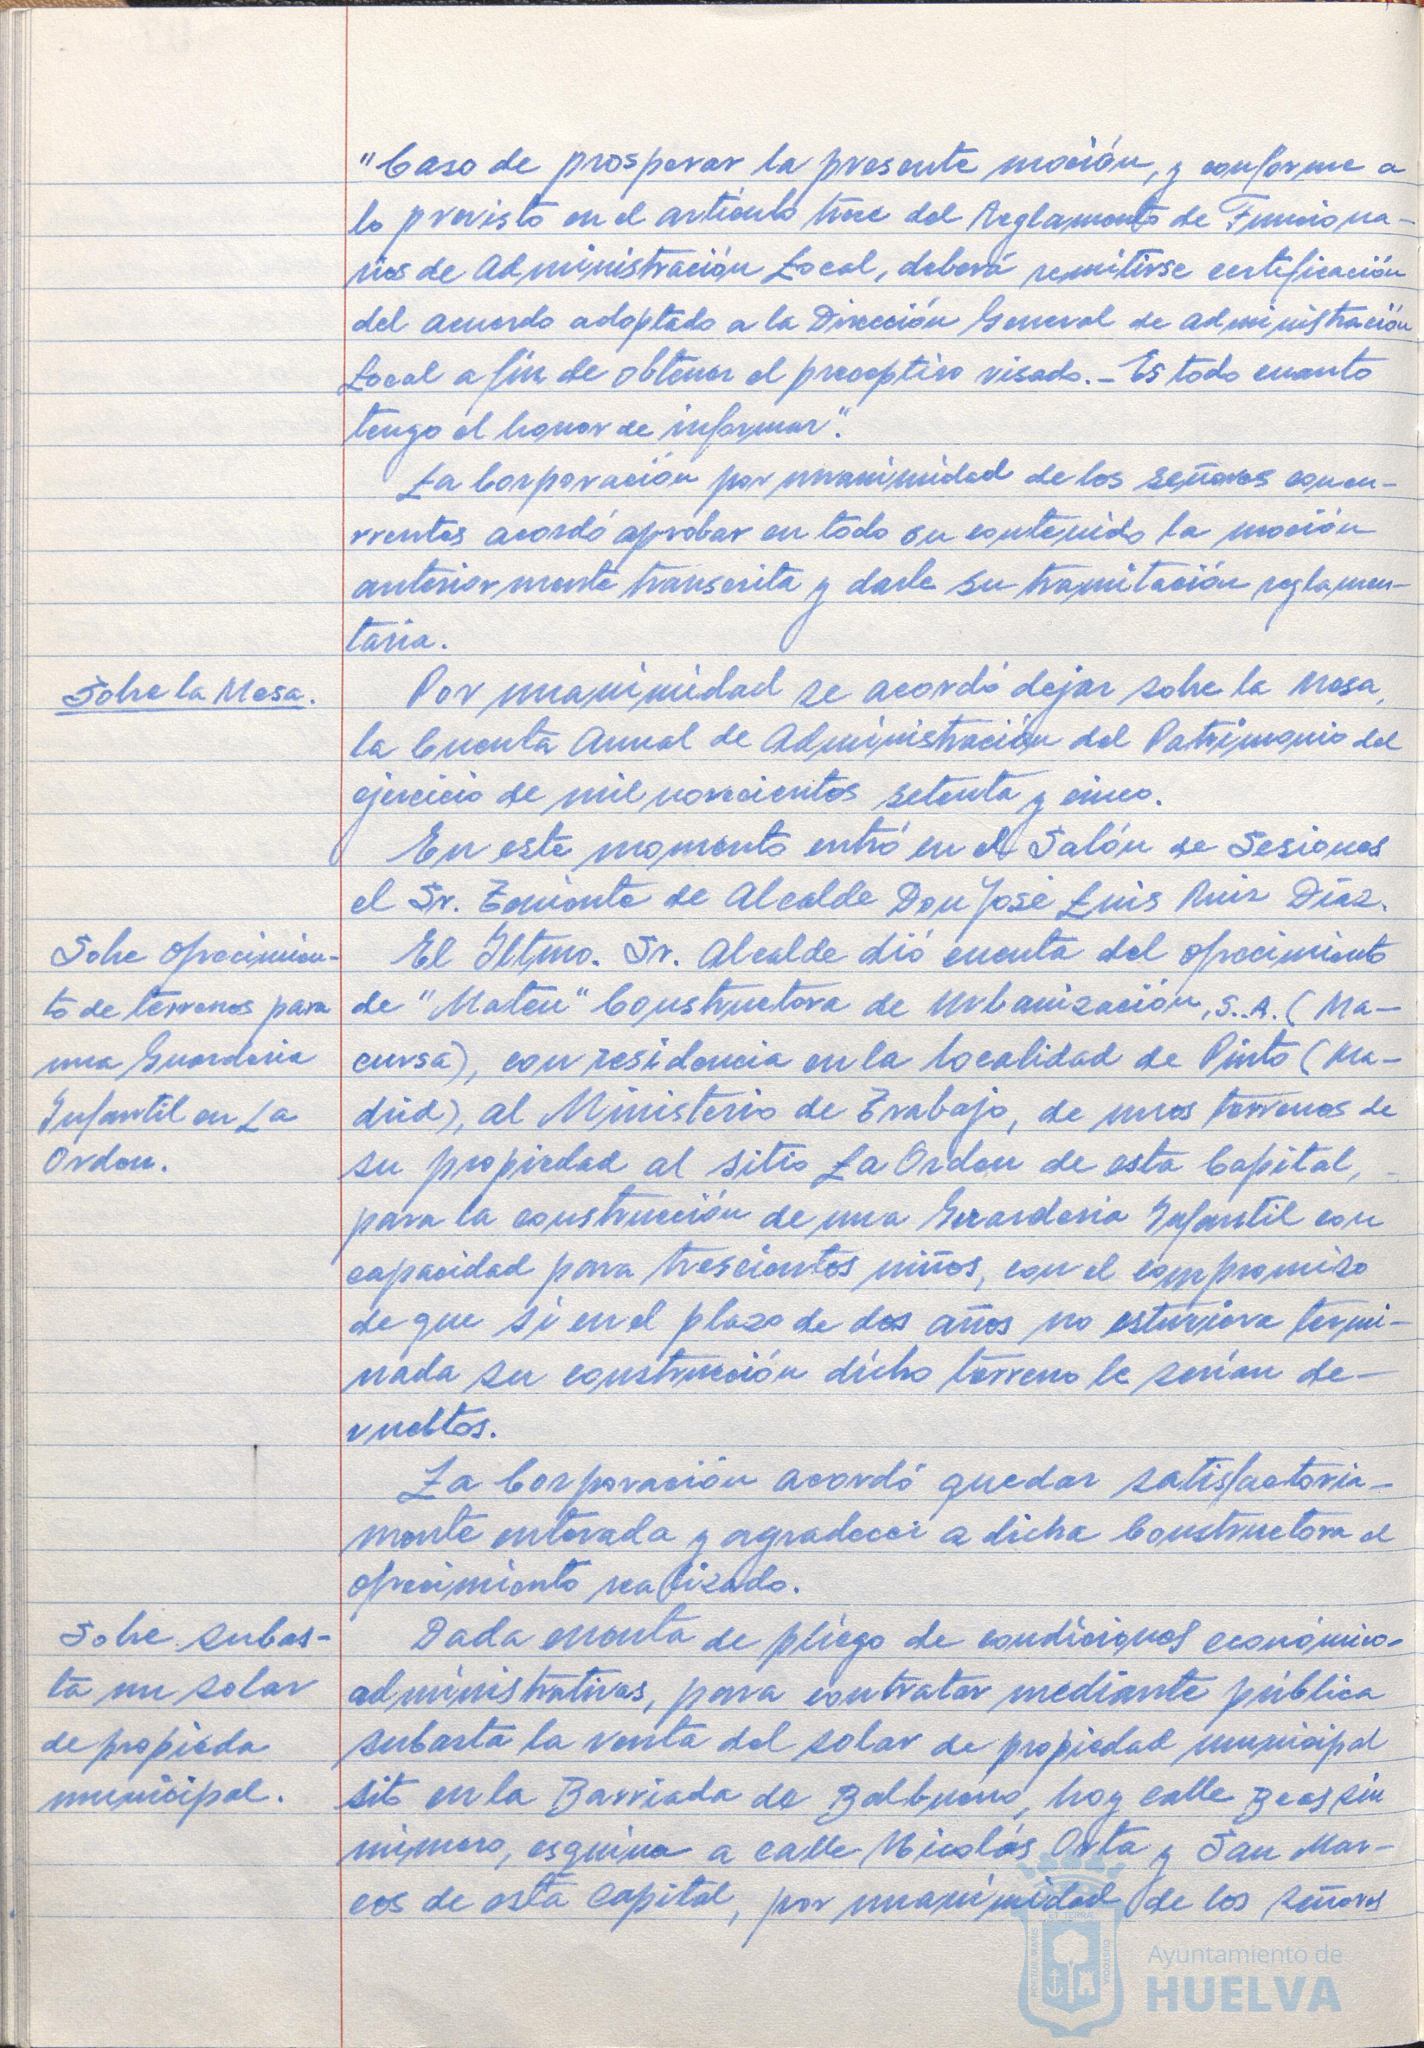 "Caso de prosperar la presente moción, y conforme a
lo previsto en el artículo trece del Reglamento de Funciona-
rios de Administración Local, deberá remitirse certificación
del acuerdo adoptado a la Dirección General de Administración
Local a fin de obtener el preceptivo visado.- Es todo cuanto
tengo el honor de informar".
La Corporación por unanimidad de los señores concu-
rrentes acordó aprobar en todo su contenido la moción
anteriormente transcrita y darle su tramitación reglamen-
taria.
Sobre la Mesa.
Por unanimidad se acordó dejar sobre la Mesa,
la Cuenta Anual de Administración del Patrimonio del
ejercicio de mil novecientos setenta y cinco.
En este momento entró en el Salón de Sesiones
el Sr. Teniente de Alcalde Don José Luis Ruiz Díaz.
Sobre ofrecimien-
to de terrenos para
una Guardería
Infantil en La
Orden.
El Iltmo. Sr. Alcalde dió cuenta del ofrecimiento
de "Mateu" Constructora de Urbanización, S.A. (Ma-
cursa), con residencia en la localidad de Pinto (Ma-
drid), al Ministerio de Trabajo, de unos terrenos de
su propiedad al sitio La Orden de esta Capital,
para la construcción de una Guarderia Infantil con
capacidad para trescientos niños, con el compromiso
de que si en el plazo de dos años no estuviera termi-
nada su construcción dicho terreno le serían de-
vueltos.
La Corporación acordó quedar satisfactoria-
mente enterada y agradecer a dicha Constructora el
ofrecimiento realizado.
Sobre subas-
ta un solar
de propieda
municipal.
Dada cuenta de pliego de condiciones económico-
administrativas, para contratar mediante pública
subasta la venta del solar de propiedad municipal
sito en la Barriada de Balbueno, hoy calle Beas sin
número, esquina a calle Nicolás Orta y San Mar-
cos de esta Capital, por unanimidad de los señores
Ayuntamiento de
HUELVA